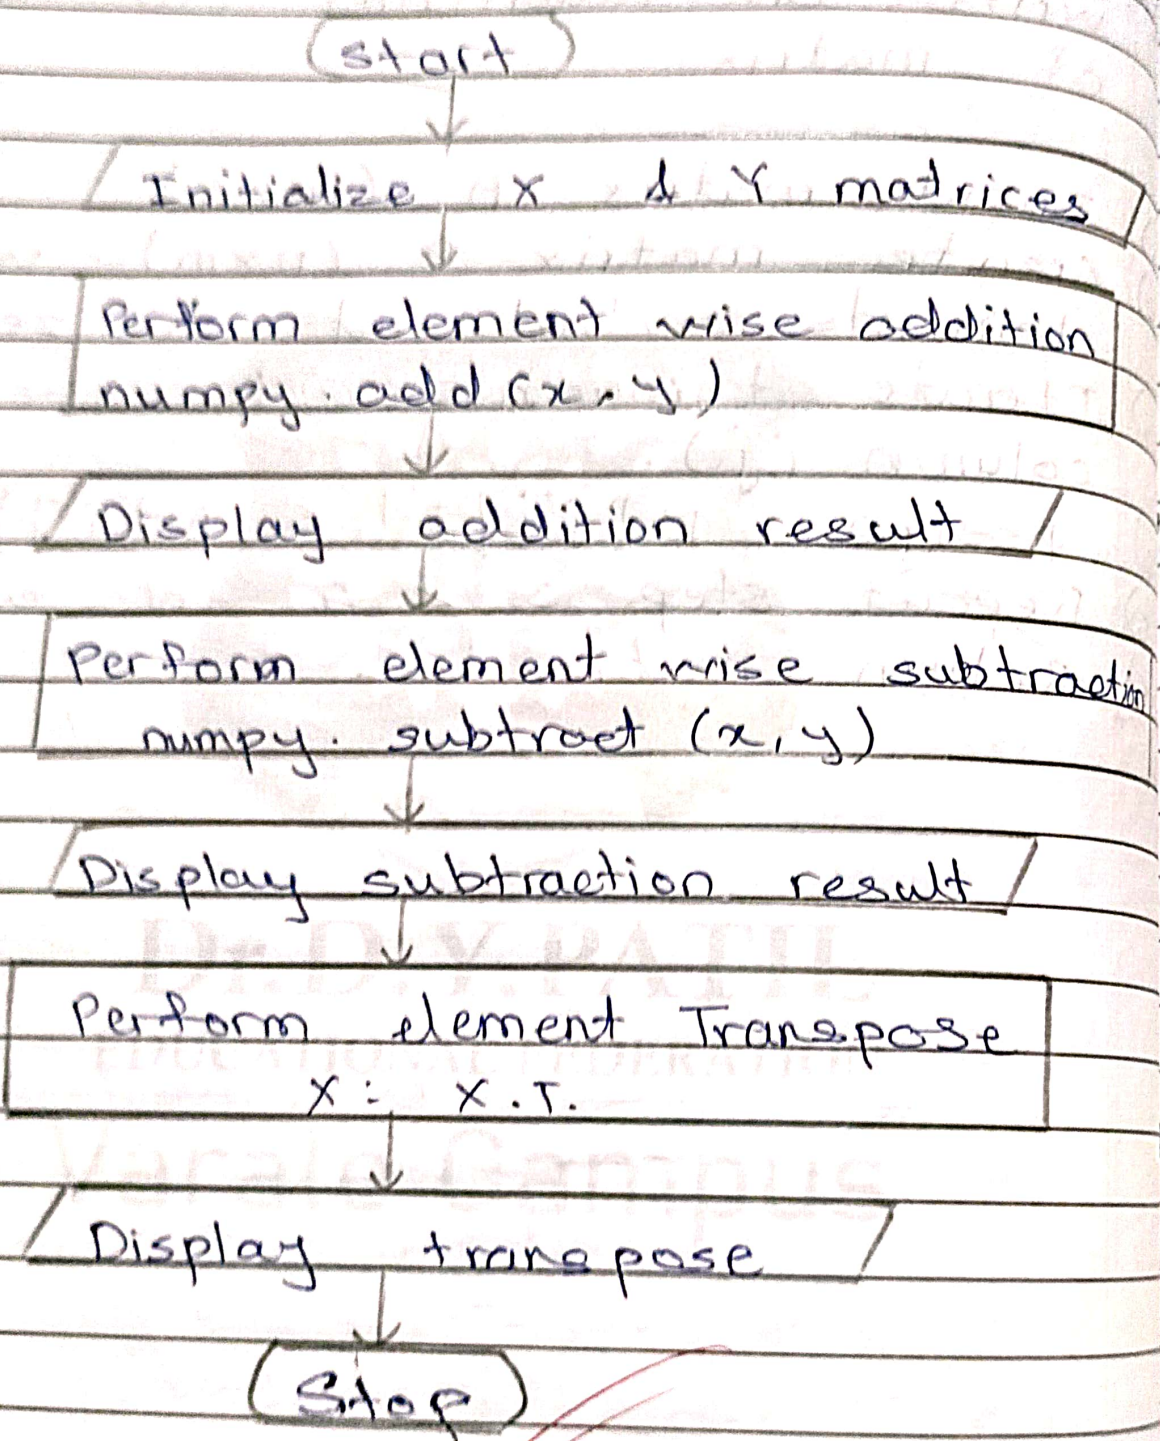 Start
Initialize X & Y matrices
Perform element wise addition
numpy.add(x,y)
Display addition result
Perform element wise subtraction
numpy.subtract(x,y)
Display subtraction result
Perform element Transpose
X = X.T.
Display transpose
Stop